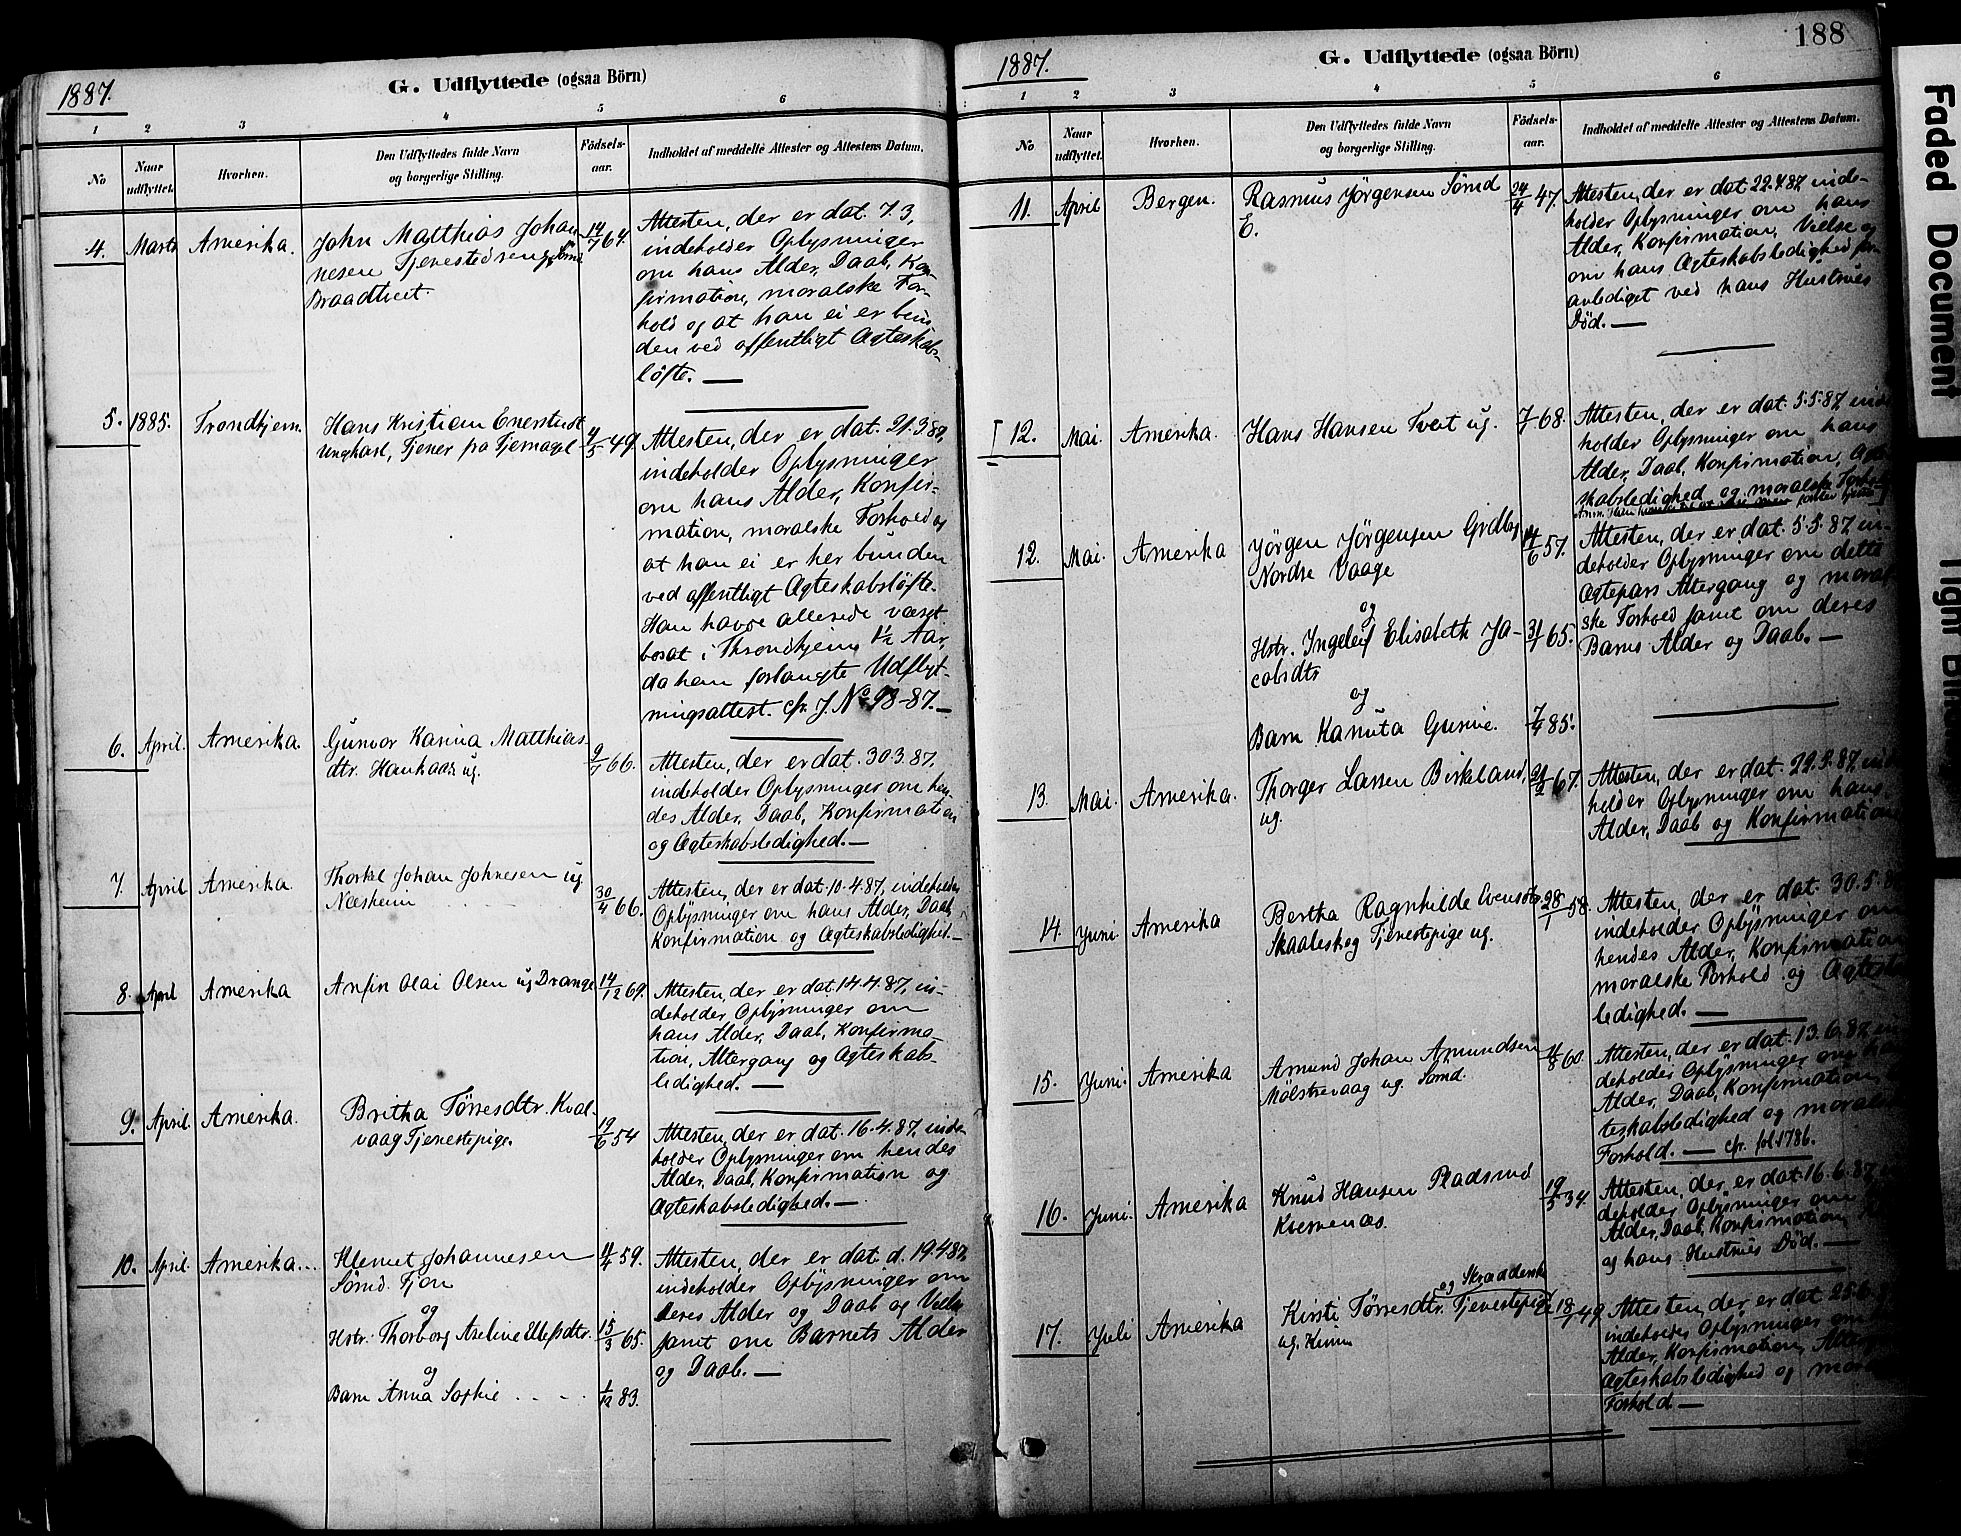 1887.
G. Udflyttede (ogsaa Börn)
1 2 3 4 5 6
No
Naar udflyttet.
Hvorhen.
Den Udflyttedes fulde Navn
og borgerlige Stilling.
Fødsels-
aar.
Indholdet af meddelte Attester og Attestens Datum.
4. Marts Amerika.
John Matthias Johan
nesen Tjenestedreng
Braadtveit.
19/7 64.
Attesten, der er dat. 7.3,
indeholder Oplysninger
om hans Alder, Daab, Kon-
firmation, moralske For-
hold og at han ei er bun
den ved offentligt Ægteskabs-
løfte. —
5. 1885. Trondhjem.
Hans Kristian Enerstvedt
Ungkarl, Tjener paa Tjernagel
4/5 49.
Attesten, der er dat. 21.3.87,
indeholder Oplysninger
om hans Alder, Konfir-
mation, moralske Forhold og
at han ei er her bunden
ved offentligt Ægteskabsløfte.
Han havde allerede været
bosat i Throndhjem 1½ Aar,
da han forlangte Udflyt-
ningsattest. cfr. J. No 98-87. —
6. April. Amerika.
Gunvor Karina Matthias-
dtr. Haukaas ug.
9/7 66.
Attesten, der er dat. 30.3.87,
indeholder Oplysninger om hen-
des Alder, Daab, Konfirmation
og Ægteskabsledighed. —
7. April Amerika.
Thorkel Johan Johnesen ug
Næsheim
30/4 66.
Attesten, der er dat. 10.4.87, indeholder
Oplysninger om hans Alder, Daab,
Konfirmation og Ægteskabsledighed. —
8. April Amerika
Anfin Olai Olsen ug Drange
14/12 69.
Attesten, der er dat. 14.4.87, in-
deholder Oplysninger om
hans Alder, Daab, Konfirma-
tion, Altergang og Ægteskabs-
ledighed. —
9. April Amerika.
Britha Tørresdtr. Kval-
vaag Tjenestepige.
19/6 54
Attesten, der er dat. 16.4.87, inde-
holder Oplysninger om hendes
Alder, Daab, Konfirmation og
Ægteskabsledighed. —
10. April. Amerika...
Klemet Johannesen
Sømd. Tjon
11/4 59.
og
Hstr. Thorborg Aseline Ellefsdtr.
15/3 65.
og
Barn Anna Sophie
1/12 83.
Attesten, der er dat. d. 19.4.87,
indeholder Oplysninger om
deres Alder og Daab og Vielse
samt om Barnets Alder
og Daab. —
188
1887.
G. Udflyttede (ogsaa Börn)
1 2 3 4 5 6
No
Naar udflyttet.
Hvorhen.
Den Udflyttedes fulde Navn
og borgerlige Stilling.
Fødsels-
aar.
Indholdet af meddelte Attester og Attestens Datum.
11. April Bergen.
Rasmus Jørgensen Sømd
E.
24/4 47.
Attesten, der er dat. 22.4.87, inde-
holder Oplysninger om hans
Alder, Konfirmation, Vielse og
om hans Ægteskabsledighed for-
anlediget ved hans Hustrues
Død. —
12. Mai. Amerika.
Hans Hansen Tveit ug.
7/7 68.
Attesten, der er dat. 5.5.87, inde
holder Oplysninger om hans
Alder, Daab, Konfirmation, Ægte
skabsledighed og moralske Forhold
12. Mai. Amerika
Jørgen Jørgensen
Nordre Vaage
14/6 57.
og
Hstr. Ingeleif Elisabeth Ja-
cobsdtr
65.
og
Barn Kanuta Gurine.
7/4 85.
Attesten, der er dat. 5.5.87, in-
deholder Oplysninger om dette
Ægtepars Altergang og moral
ske Forhold samt om deres
Barns Alder og Daab. —
13. Mai. Amerika.
Thorger Larsen Birkland,
ug.
21/2 67.
Attesten, der er dat. 22.5.87, inde
holder Oplysninger om hans
Alder, Daab og Konfirmation
14. Juni. Amerika
Bertha Ragnhilde Evensdtr.
Skaaleskog Tjenestepige ug.
28/1 58.
Attesten, der er dat. 30.5.87
indeholder Oplysninger om
hendes Alder, Konfirmation
moralske Forhold og Ægteskabs
ledighed. —
15. Juni. Amerika
Amund Johan Amundsen
Mølstrevaag ug. Sømd.
11/8 60.
Attesten, der er dat. 13.6.87, in
deholder Oplysninger om hans
Alder, Daab, Konfirmation
teskabsledighed og moralske
Forhold. — cfr. fol. 178b.
16. Juni. Amerika
Knud Hansen Pladsmd
Kvernenæs.
19/5 34.
Attesten, der er dat. 16.6.87
deholder Oplysninger om
Alder, Daab, Konfirmation
og hans Hustrues Død. —
17. Juli Amerika
og Skrædderske
Kirsti Tørresdtr. Tjenestepige
ug.
49.
Attesten, der er dat. 25.6
indeholder Oplysninger om
Alder, Konfirmation,
Ægteskabsledighed og mor
Forhold. —
Faded Document
Tight Bind